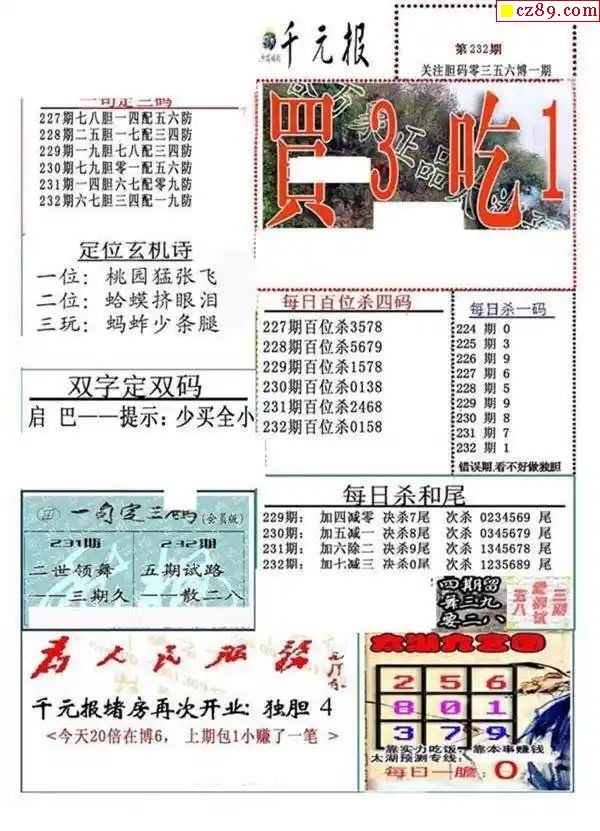 cz89.com
千元报
第232期
关注胆码零三五六博一期
一句定三码
227期七八胆一四配五六防
228期二五胆一七配三四防
229期一九胆七八配三四防
230期七九胆零一配五六防
231期一四胆六七配零九防
232期六七胆三四配一九防
買3吃1
正品
定位玄机诗
一位：桃园猛张飞
二位：蛤蟆挤眼泪
三玩：蚂蚱少条腿
每日百位杀四码
227期百位杀3578
228期百位杀5679
229期百位杀1578
230期百位杀0138
231期百位杀2468
232期百位杀0158
每日杀一码
224 期 0
225 期 3
226 期 9
227 期 6
228 期 5
229 期 9
230 期 8
231 期 7
232 期 1
错误期,看不好做独胆
双字定双码
启 巴——提示：少买全小
每日杀和尾
229期： 加四减零 决杀7尾 次杀 0234569 尾
230期： 加五减一 决杀8尾 次杀 0234569 尾
231期： 加六除二 决杀9尾 次杀 1345678 尾
232期： 加七减三 决杀0尾 次杀 1235689 尾
一句定三码(会员版)
231期
二世领舞
——三期久
232期
五期试路
——散二八
四期留
舞三九
零二八
为人民服务
千元报堵房再次开业: 独胆 4
<今天20倍在博6， 上期包1小赚了一笔 >
太湖九宫图
2 5 6
8 0 1
3 7 9
靠实力吃饭，靠本事赚钱
太湖预测专线:
每日一胆: 0